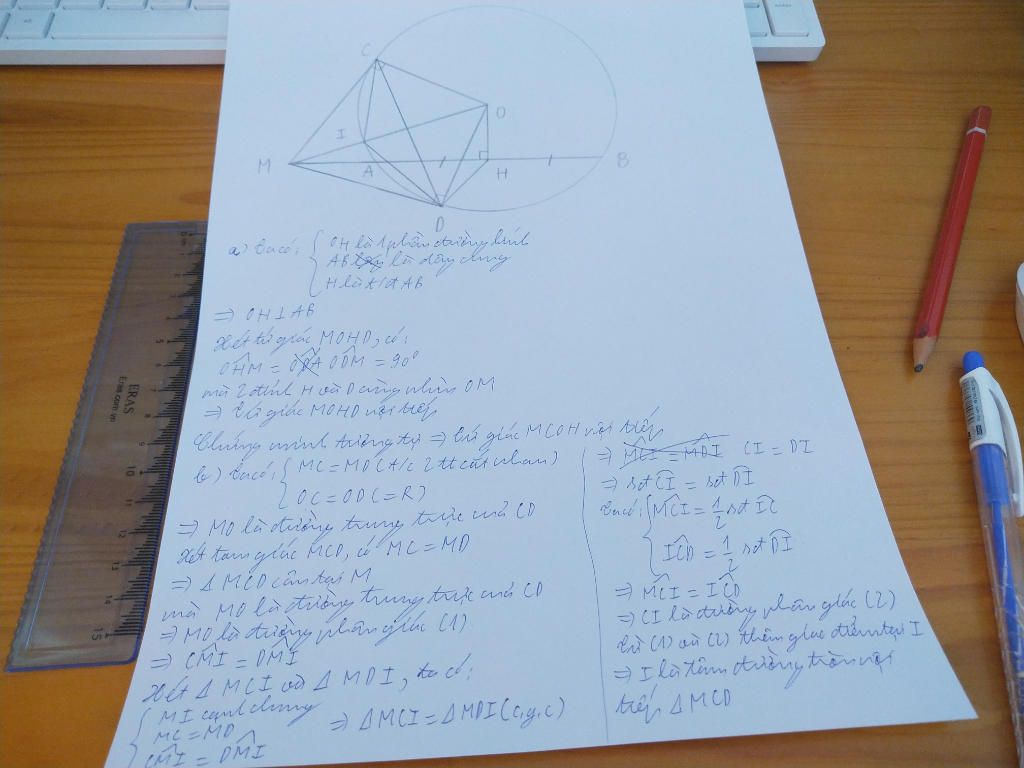 C
O
I
M
A
H
B
D
a) Ta có: { OH là 1 phần đường kính
AB là dây cung
H là t/đ AB
=> OH⊥AB
Xét tứ giác MOHD, có:
OHM = ODM = 90°
mà 2 đỉnh H và D cùng nhìn OM
=> Tứ giác MOHD nội tiếp
Chứng minh tương tự => tứ giác MCOH nội tiếp
b) Ta có: { MC = MD (t/c 2 tt cắt nhau)
OC = OD (= R)
=> MO là đường trung trực của CD
Xét tam giác MCD, có MC = MD
=> Δ MCD cân tại M
mà MO là đường trung trực của CD
=> MO là đường phân giác (1)
=> CMI = DMI
Xét Δ MCI và Δ MDI, ta có:
{ MI cạnh chung
MC = MD
CMI = DMI
=> Δ MCI = Δ MDI (c.g.c)
=> MCI = MDI CI = DI
=> sđ CI = sđ DI
Ta có: { MCI = 1/2 sđ IC
ICD = 1/2 sđ DI
=> MCI = ICD
=> CI là đường phân giác (2)
Từ (1) và (2) thêm giao điểm tại I
=> I là tâm đường tròn nội
tiếp Δ MCD
ERAS
Eras.com.vn
5
6
7
8
9
10
11
12
13
14
15